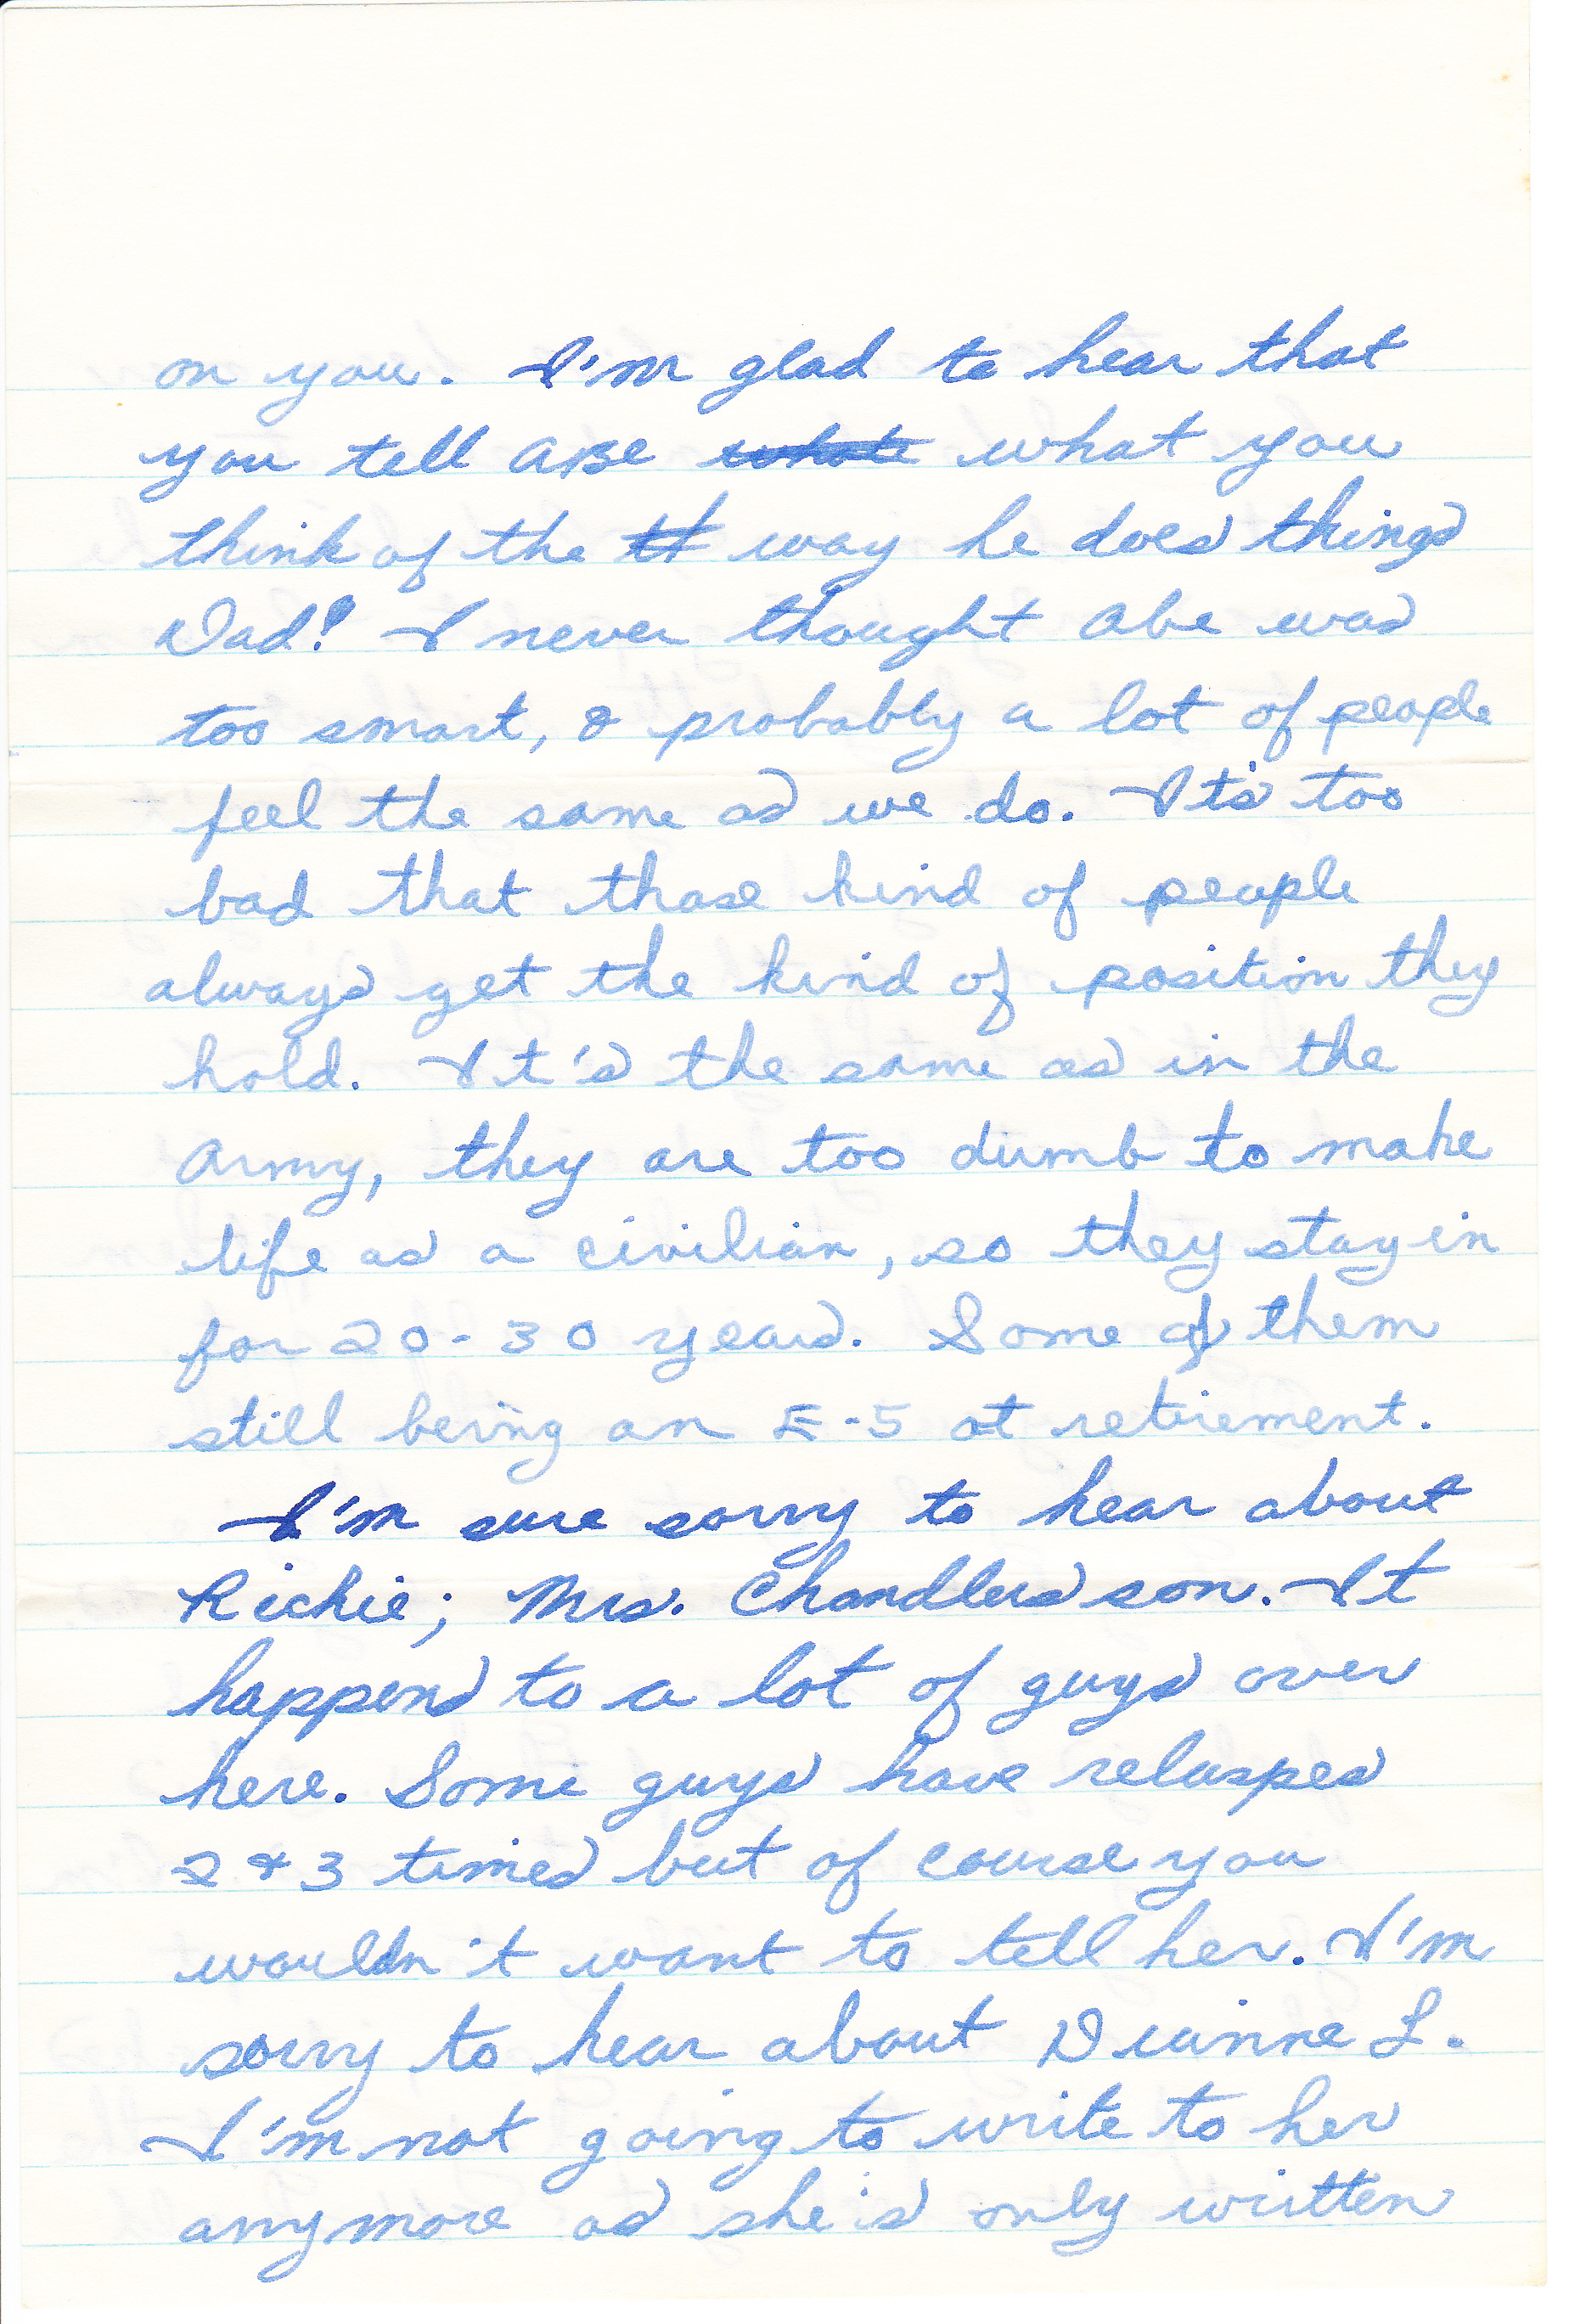 on you. I'm glad to hear that
you tell ABE what you
think of the way he does things
Dad! I never thought Abe was
too smart, & probably a lot of people
feel the same as we do. It's too
bad that those kind of people
always get the kind of position they
hold. It's the same as in the
Army, they are too dumb to make
life as a civilian, so they stay in
for 20-30 years. Some of them
still being an E-5 at retirement.
I'm sure sorry to hear about
Richie; Mrs. Chandlers son. It
happens to a lot of guys over
here. Some guys have relaspes
2 & 3 times but of course you
wouldn't want to tell her. I'm
sorry to hear about Dianne L.
I'm not going to write to her
anymore as she's only written